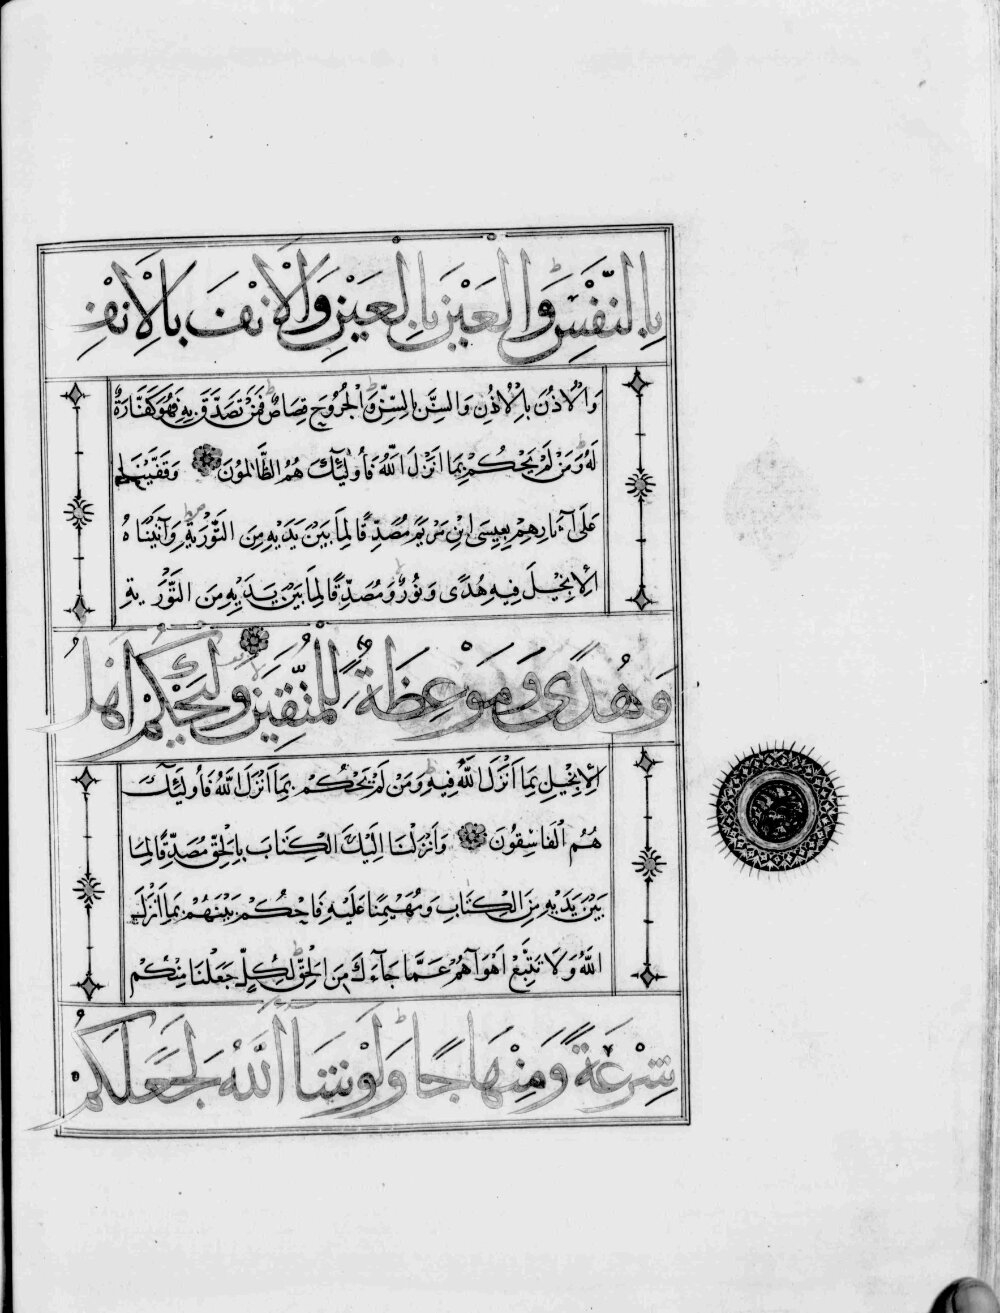 بِالنَّفْسِ وَالْعَيْنَ بِالْعَيْنِ وَالْاَنْفَ بِالْاَنْفِ
وَالْاُذُنَ بِالْاُذُنِ وَالسِّنَّ بِالسِّنِّ وَالْجُرُوحَ قِصَاصٌ فَمَنْ تَصَدَّقَ بِهِ فَهُوَ كَفَّارَةٌ
لَهُ وَمَنْ لَمْ يَحْكُمْ بِمَا اَنْزَلَ اللّٰهُ فَأُولٰئِكَ هُمُ الظَّالِمُونَ وَقَفَّيْنَا
عَلَى آثَارِهِمْ بِعِيسَى ابْنِ مَرْيَمَ مُصَدِّقًا لِمَا بَيْنَ يَدَيْهِ مِنَ التَّوْرٰيةِ وَآتَيْنَاهُ
الْاِنْجِيلَ فِيهِ هُدًى وَنُورٌ وَمُصَدِّقًا لِمَا بَيْنَ يَدَيْهِ مِنَ التَّوْرٰيةِ
وَهُدًى وَمَوْعِظَةً لِلْمُتَّقِينَ وَلْيَحْكُمْ اَهْلُ
الْاِنْجِيلِ بِمَا اَنْزَلَ اللّٰهُ فِيهِ وَمَنْ لَمْ يَحْكُمْ بِمَا اَنْزَلَ اللّٰهُ فَأُولٰئِكَ
هُمُ الْفَاسِقُونَ وَاَنْزَلْنَا اِلَيْكَ الْكِتَابَ بِالْحَقِّ مُصَدِّقًا لِمَا
بَيْنَ يَدَيْهِ مِنَ الْكِتَابِ وَمُهَيْمِنًا عَلَيْهِ فَاحْكُمْ بَيْنَهُمْ بِمَا اَنْزَلَ
اللّٰهُ وَلَا تَتَّبِعْ اَهْوَآءَهُمْ عَمَّا جَآءَكَ مِنَ الْحَقِّ لِكُلٍّ جَعَلْنَا مِنْكُمْ
شِرْعَةً وَمِنْهَاجًا وَلَوْ شَآءَ اللّٰهُ لَجَعَلَكُمْ